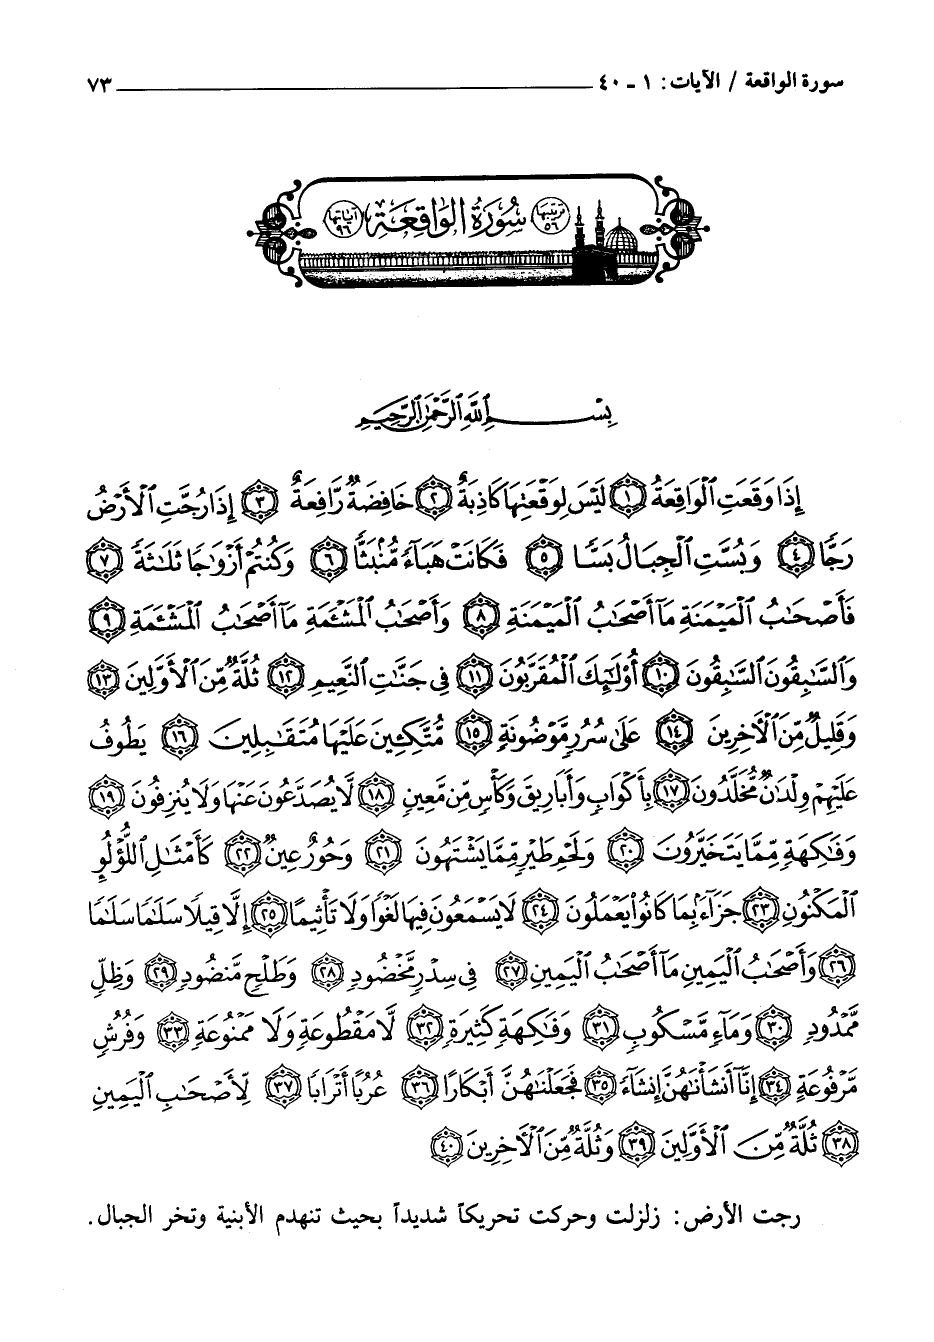 سورة الواقعة / الآيات: ١ ـ ٤٠ ٧٣
ترتيبها ٥٦ سُورَةُ الوَاقِعَةِ آياتها ٩٦
بِسْمِ ٱللَّهِ ٱلرَّحْمَٰنِ ٱلرَّحِيمِ
إِذَا وَقَعَتِ ٱلْوَاقِعَةُ ١ لَيْسَ لِوَقْعَتِهَا كَاذِبَةٌ ٢ خَافِضَةٌ رَّافِعَةٌ ٣ إِذَا رُجَّتِ ٱلْأَرْضُ
رَجًّا ٤ وَبُسَّتِ ٱلْجِبَالُ بَسًّا ٥ فَكَانَتْ هَبَآءً مُّنۢبَثًّا ٦ وَكُنتُمْ أَزْوَٰجًا ثَلَٰثَةً ٧
فَأَصْحَٰبُ ٱلْمَيْمَنَةِ مَآ أَصْحَٰبُ ٱلْمَيْمَنَةِ ٨ وَأَصْحَٰبُ ٱلْمَشْـَٔمَةِ مَآ أَصْحَٰبُ ٱلْمَشْـَٔمَةِ ٩
وَٱلسَّٰبِقُونَ ٱلسَّٰبِقُونَ ١٠ أُو۟لَٰٓئِكَ ٱلْمُقَرَّبُونَ ١١ فِى جَنَّٰتِ ٱلنَّعِيمِ ١٢ ثُلَّةٌ مِّنَ ٱلْأَوَّلِينَ ١٣
وَقَلِيلٌ مِّنَ ٱلْءَاخِرِينَ ١٤ عَلَىٰ سُرُرٍ مَّوْضُونَةٍ ١٥ مُّتَّكِـِٔينَ عَلَيْهَا مُتَقَٰبِلِينَ ١٦ يَطُوفُ
عَلَيْهِمْ وِلْدَٰنٌ مُّخَلَّدُونَ ١٧ بِأَكْوَابٍ وَأَبَارِيقَ وَكَأْسٍ مِّن مَّعِينٍ ١٨ لَّا يُصَدَّعُونَ عَنْهَا وَلَا يُنزِفُونَ ١٩
وَفَٰكِهَةٍ مِّمَّا يَتَخَيَّرُونَ ٢٠ وَلَحْمِ طَيْرٍ مِّمَّا يَشْتَهُونَ ٢١ وَحُورٌ عِينٌ ٢٢ كَأَمْثَٰلِ ٱللُّؤْلُؤِ
ٱلْمَكْنُونِ ٢٣ جَزَآءًۢ بِمَا كَانُوا۟ يَعْمَلُونَ ٢٤ لَا يَسْمَعُونَ فِيهَا لَغْوًا وَلَا تَأْثِيمًا ٢٥ إِلَّا قِيلًا سَلَٰمًا سَلَٰمًا
٢٦ وَأَصْحَٰبُ ٱلْيَمِينِ مَآ أَصْحَٰبُ ٱلْيَمِينِ ٢٧ فِى سِدْرٍ مَّخْضُودٍ ٢٨ وَطَلْحٍ مَّنضُودٍ ٢٩ وَظِلٍّ
مَّمْدُودٍ ٣٠ وَمَآءٍ مَّسْكُوبٍ ٣١ وَفَٰكِهَةٍ كَثِيرَةٍ ٣٢ لَّا مَقْطُوعَةٍ وَلَا مَمْنُوعَةٍ ٣٣ وَفُرُشٍ
مَّرْفُوعَةٍ ٣٤ إِنَّآ أَنشَأْنَٰهُنَّ إِنشَآءً ٣٥ فَجَعَلْنَٰهُنَّ أَبْكَارًا ٣٦ عُرُبًا أَتْرَابًا ٣٧ لِّأَصْحَٰبِ ٱلْيَمِينِ
٣٨ ثُلَّةٌ مِّنَ ٱلْأَوَّلِينَ ٣٩ وَثُلَّةٌ مِّنَ ٱلْءَاخِرِينَ ٤٠
رجت الأرض: زلزلت وحركت تحريكاً شديداً بحيث تنهدم الأبنية وتخر الجبال.